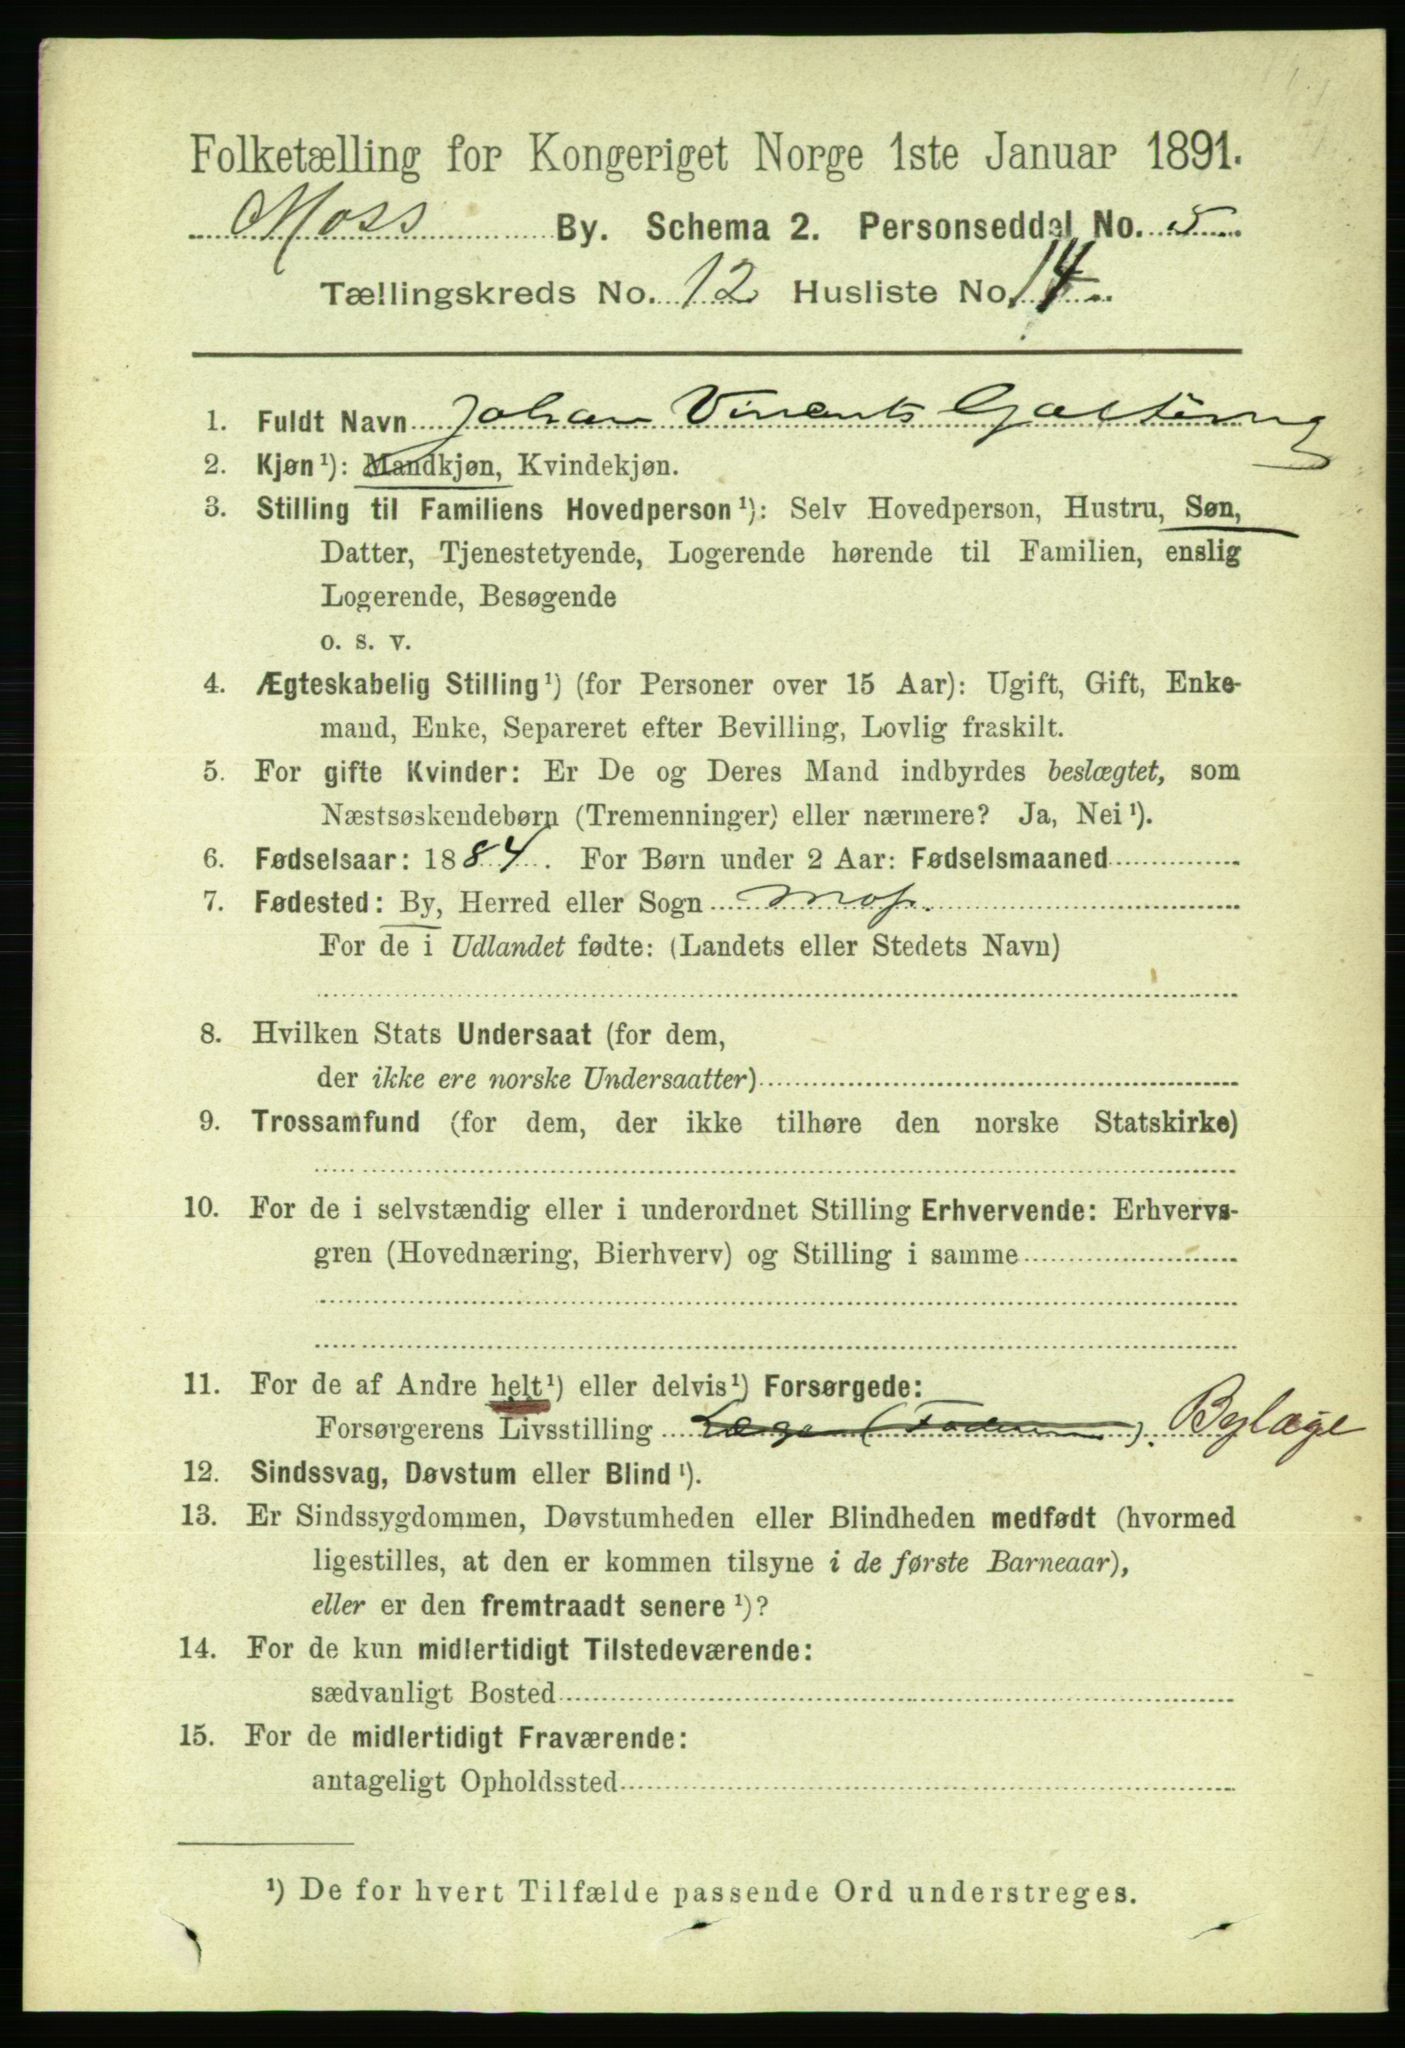 Folketælling for Kongeriget Norge 1ste Januar 1891.
Moss By. Schema 2. Personseddel No. 5
Tællingskreds No. 12 Husliste No. 14
1. Fuldt Navn Johan Vincents Galtung
2. Kjøn¹): Mandkjøn, Kvindekjøn.
3. Stilling til Familiens Hovedperson¹): Selv Hovedperson, Hustru, Søn,
Datter, Tjenestetyende, Logerende hørende til Familien, enslig
Logerende, Besøgende
o. s. v.
4. Ægteskabelig Stilling¹) (for Personer over 15 Aar): Ugift, Gift, Enke-
mand, Enke, Separeret efter Bevilling, Lovlig fraskilt.
5. For gifte Kvinder: Er De og Deres Mand indbyrdes beslægtet, som
Næstsøskendebørn (Tremenninger) eller nærmere? Ja, Nei¹).
6. Fødselsaar: 1884. For Børn under 2 Aar: Fødselsmaaned
7. Fødested: By, Herred eller Sogn Moss.
For de i Udlandet fødte: (Landets eller Stedets Navn)
8. Hvilken Stats Undersaat (for dem,
der ikke ere norske Undersaatter)
9. Trossamfund (for dem, der ikke tilhøre den norske Statskirke)
10. For de i selvstændig eller i underordnet Stilling Erhvervende: Erhvervs-
gren (Hovednæring, Bierhverv) og Stilling i samme
11. For de af Andre helt¹) eller delvis¹) Forsørgede:
Forsørgerens Livsstilling Læge (Faderen). Bylæge
12. Sindssvag, Døvstum eller Blind¹).
13. Er Sindssygdommen, Døvstumheden eller Blindheden medfødt (hvormed
ligestilles, at den er kommen tilsyne i de første Barneaar),
eller er den fremtraadt senere¹)?
14. For de kun midlertidigt Tilstedeværende:
sædvanligt Bosted
15. For de midlertidigt Fraværende:
antageligt Opholdssted
¹) De for hvert Tilfælde passende Ord understreges.